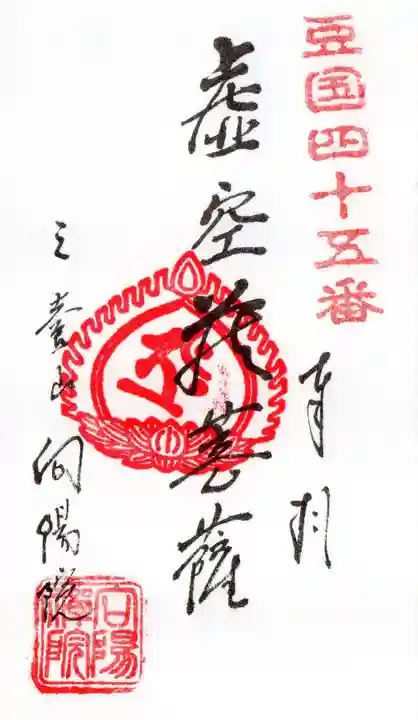 豆国四十五番
奉拝
虚空蔵菩薩
山 向陽院
向陽
院